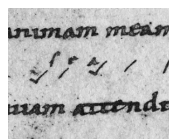 animam meam
uam attendi